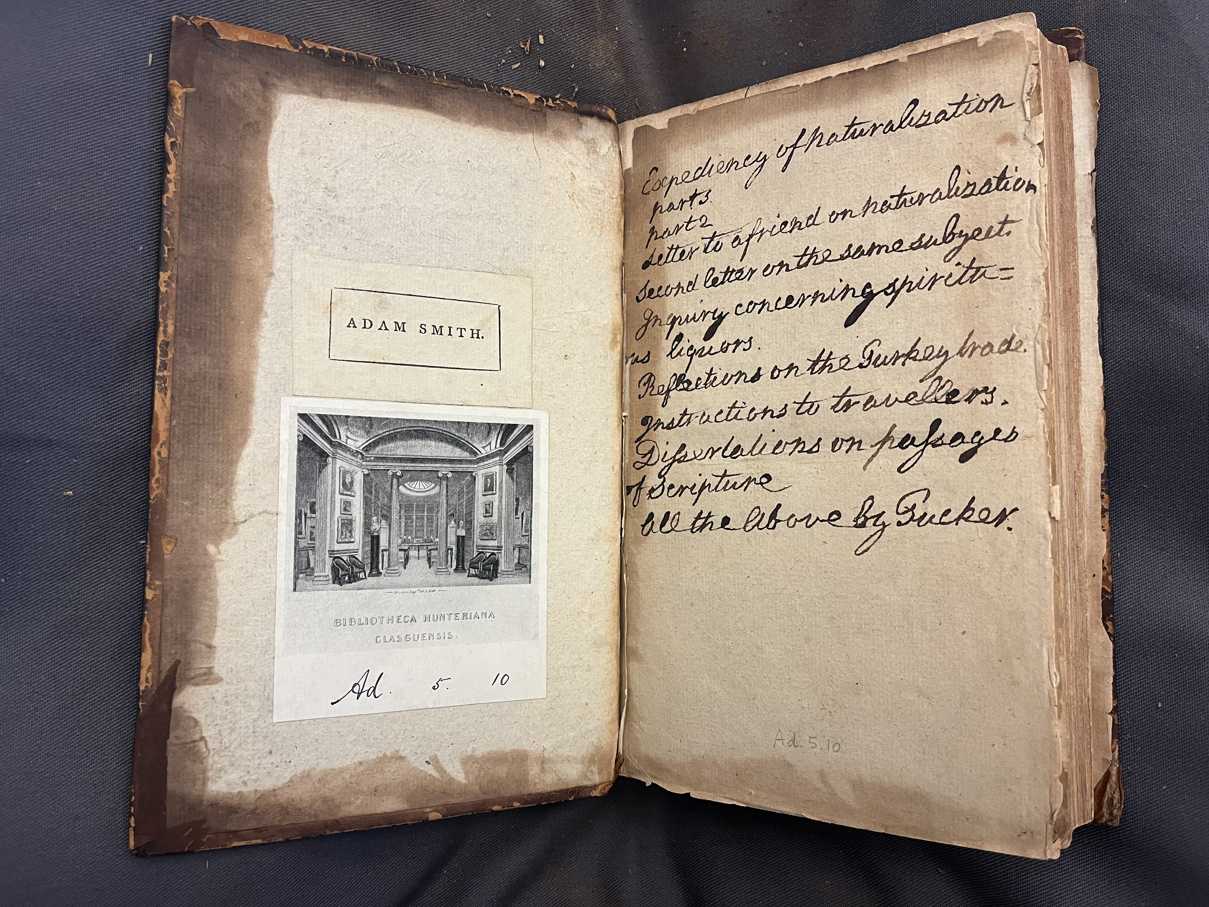 ADAM SMITH.
BIBLIOTHECA HUNTERIANA
GLASGUENSIS.
Ad. 5. 10
Expediency of naturalization
part 3.
part 2
Letter to a friend on naturalization
Second letter on the same subject.
Inquiry concerning spiritu=
ous liquors.
Reflections on the Turkey trade.
Instructions to travellers.
Dissertations on passages
of Scripture
All the Above by Tucker.
Ad. 5.10